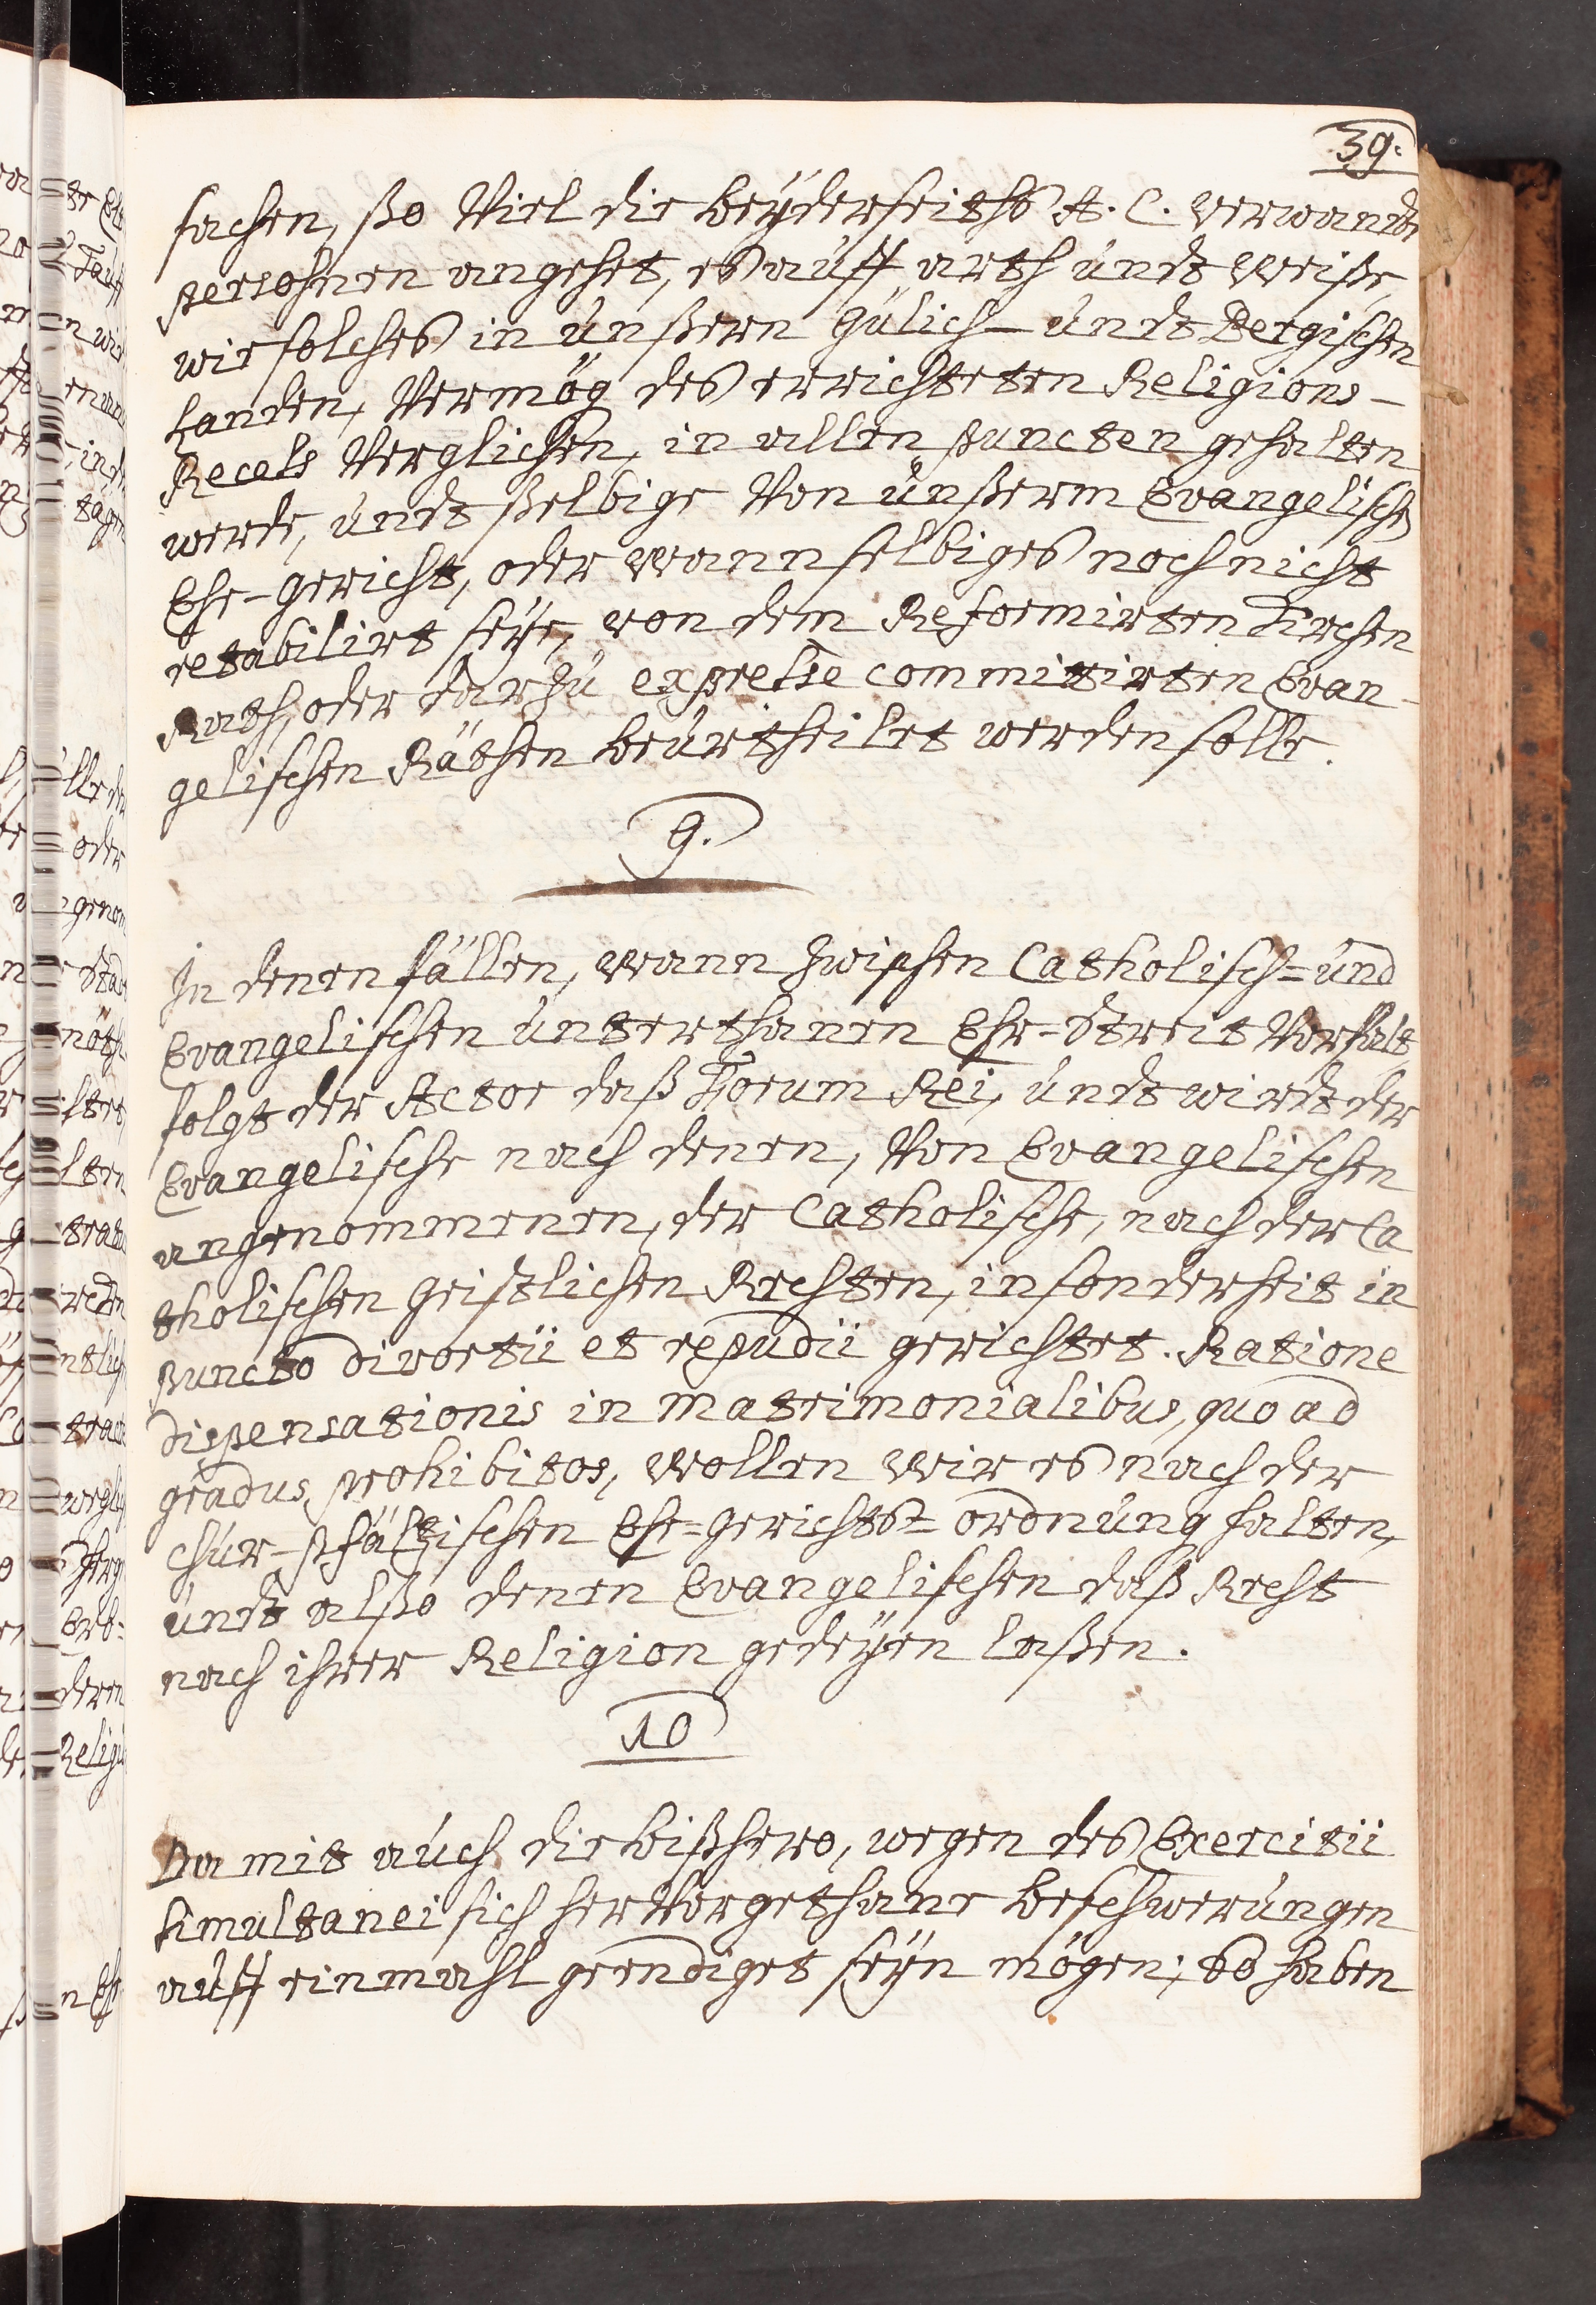 39.
sachen, ßo Viel die beÿderseiths A. C. verwandte
persohnen angehet, es auff arth undt Weiße,
wie solches in unßern Gülich- undt Bergischen
Landen, Vermög des errichteten Religions-
Recess Verglichen, in allen puncten gehalten
werde, undt ßelbige Von unßerm Evangelischen
Ehe-gericht, oder wann selbiges noch nicht
retabilirt seÿe, von dem Reformirten Kirchen
Rath, oder darzu expresse committirten Evan-
gelischen Räthen beurtheilet werden solle.
9.
In denen fällen, wann zwischen Catholisch= und
Evangelischen unterthanen Ehe=streit Vorfalt
folgt der Actor daß Forum Rei, undt wirdt der
Evangelische nach denen, Von Evangelischen
angenommenen, der Catholische, nach der Ca
tholischen geistlichen Rechten, insonderheit in
puncto divortii et repudii gerichtet. Ratione
dispensationis in Matrimonialibus, quo ad
gradus prohibitos, wollen wir es nach der
Chur-pfältzischen Ehe=gerichts=ordnung halten,
undt alßo denen Evangelischen daß Recht
nach ihrer Religion gedeÿen laßen.
10
Da mit auch die bißhero, wegen des Exercitii
Simultanei sich her Vorgethane beschwerungen
auff einmahl geendiget seÿn mögen; So haben